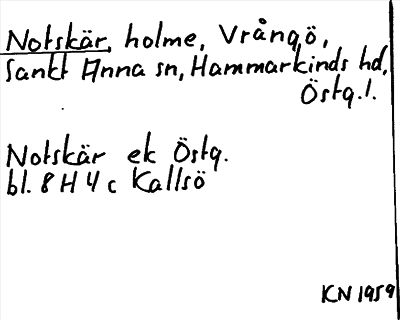 Notskär, holme, Vrångö,
Sankt Anna sn, Hammarkinds hd,
Östg.l.
Notskär ek Östg.
bl. 8 H 4 c Kallsö
KN 1959